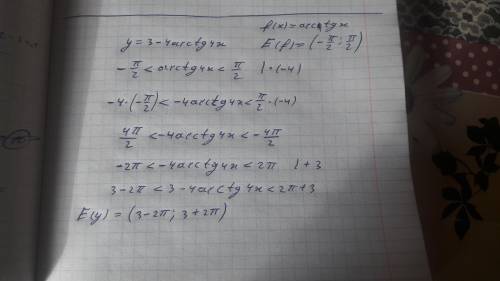 f(x)=arcctgx
y = 3-4arctg4x E(f)=(-π/2; π/2)
-π/2 < arctg4x < π/2 | ·(-4)
-4·(-π/2) < -4arctg4x < π/2·(-4)
4π/2 < -4arctg4x < -4π/2
-2π < -4arctg4x < 2π | +3
3-2π < 3-4arctg4x < 2π+3
E(y) = (3-2π; 3+2π)